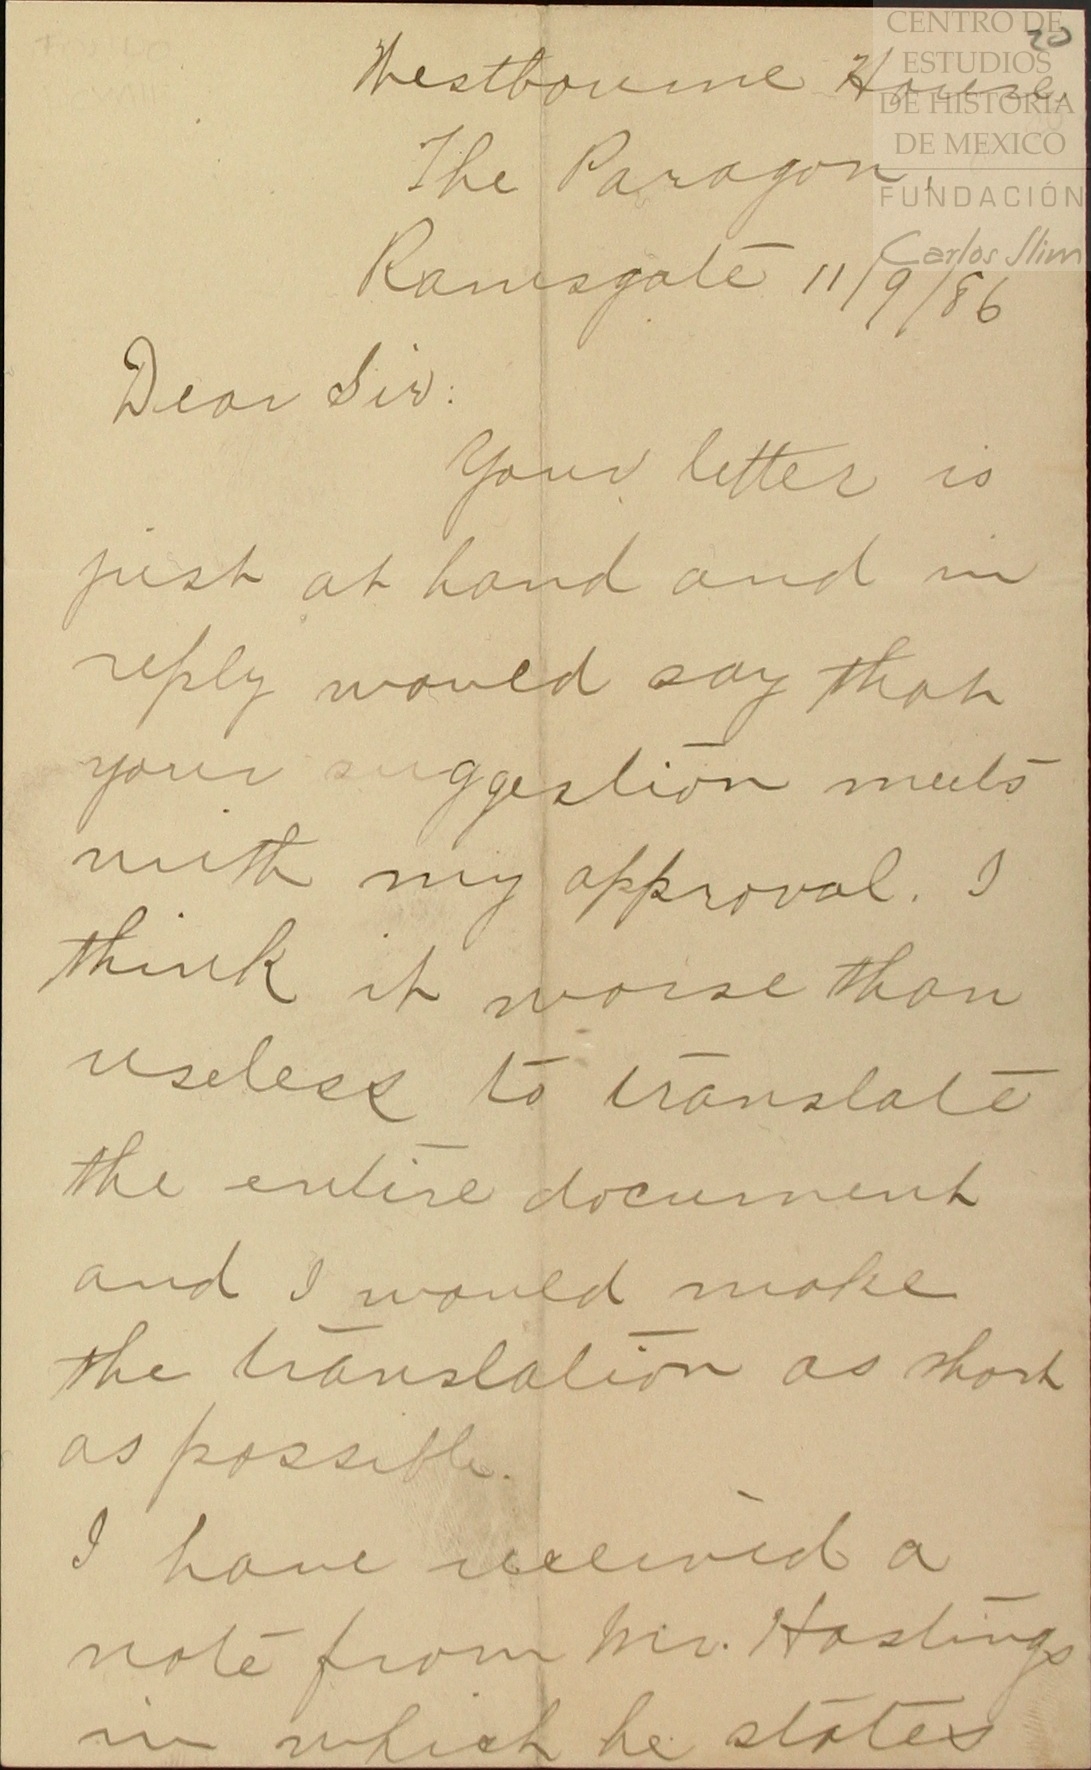 20
CENTRO DE
ESTUDIOS
DE HISTORIA
DE MEXICO
FUNDACIÓN
Carlos Slim
Westbourne House,
The Paragon,
Ramsgate 11/9/86
Dear Sir:
Your letter is
just at hand and in
reply would say that
your suggestion meets
with my approval. I
think it worse than
useless to translate
the entire document
and I would make
the translation as short
as possible.
I have received a
note from Mr. Hastings
in which he states